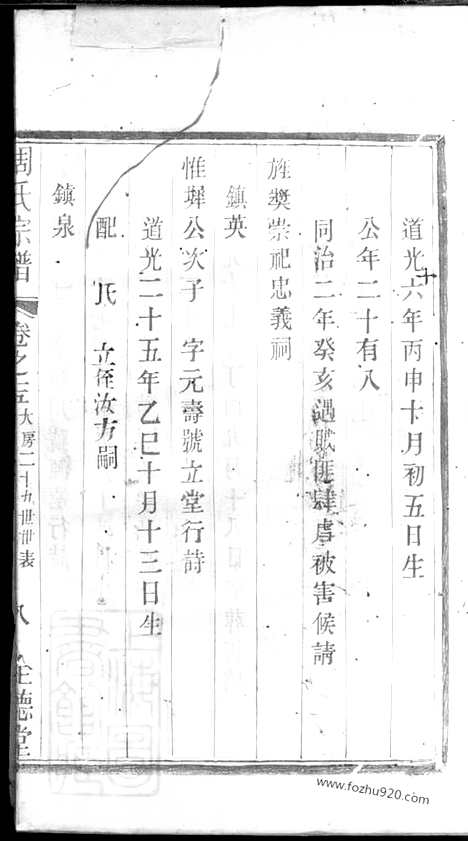 道光十六年丙申十月初五日生
公年二十有八
同治二年癸亥遇賊匪肆虐被害候請
旌獎崇祀忠義祠
鎮英
惟墀公次子 字元壽號立堂行詩
道光二十五年乙巳十月十三日生
配 氏 立侄汝方嗣
鎮泉
周氏宗譜 卷之五 大房二十九世世表 八 全德堂
www.fozhu920.com